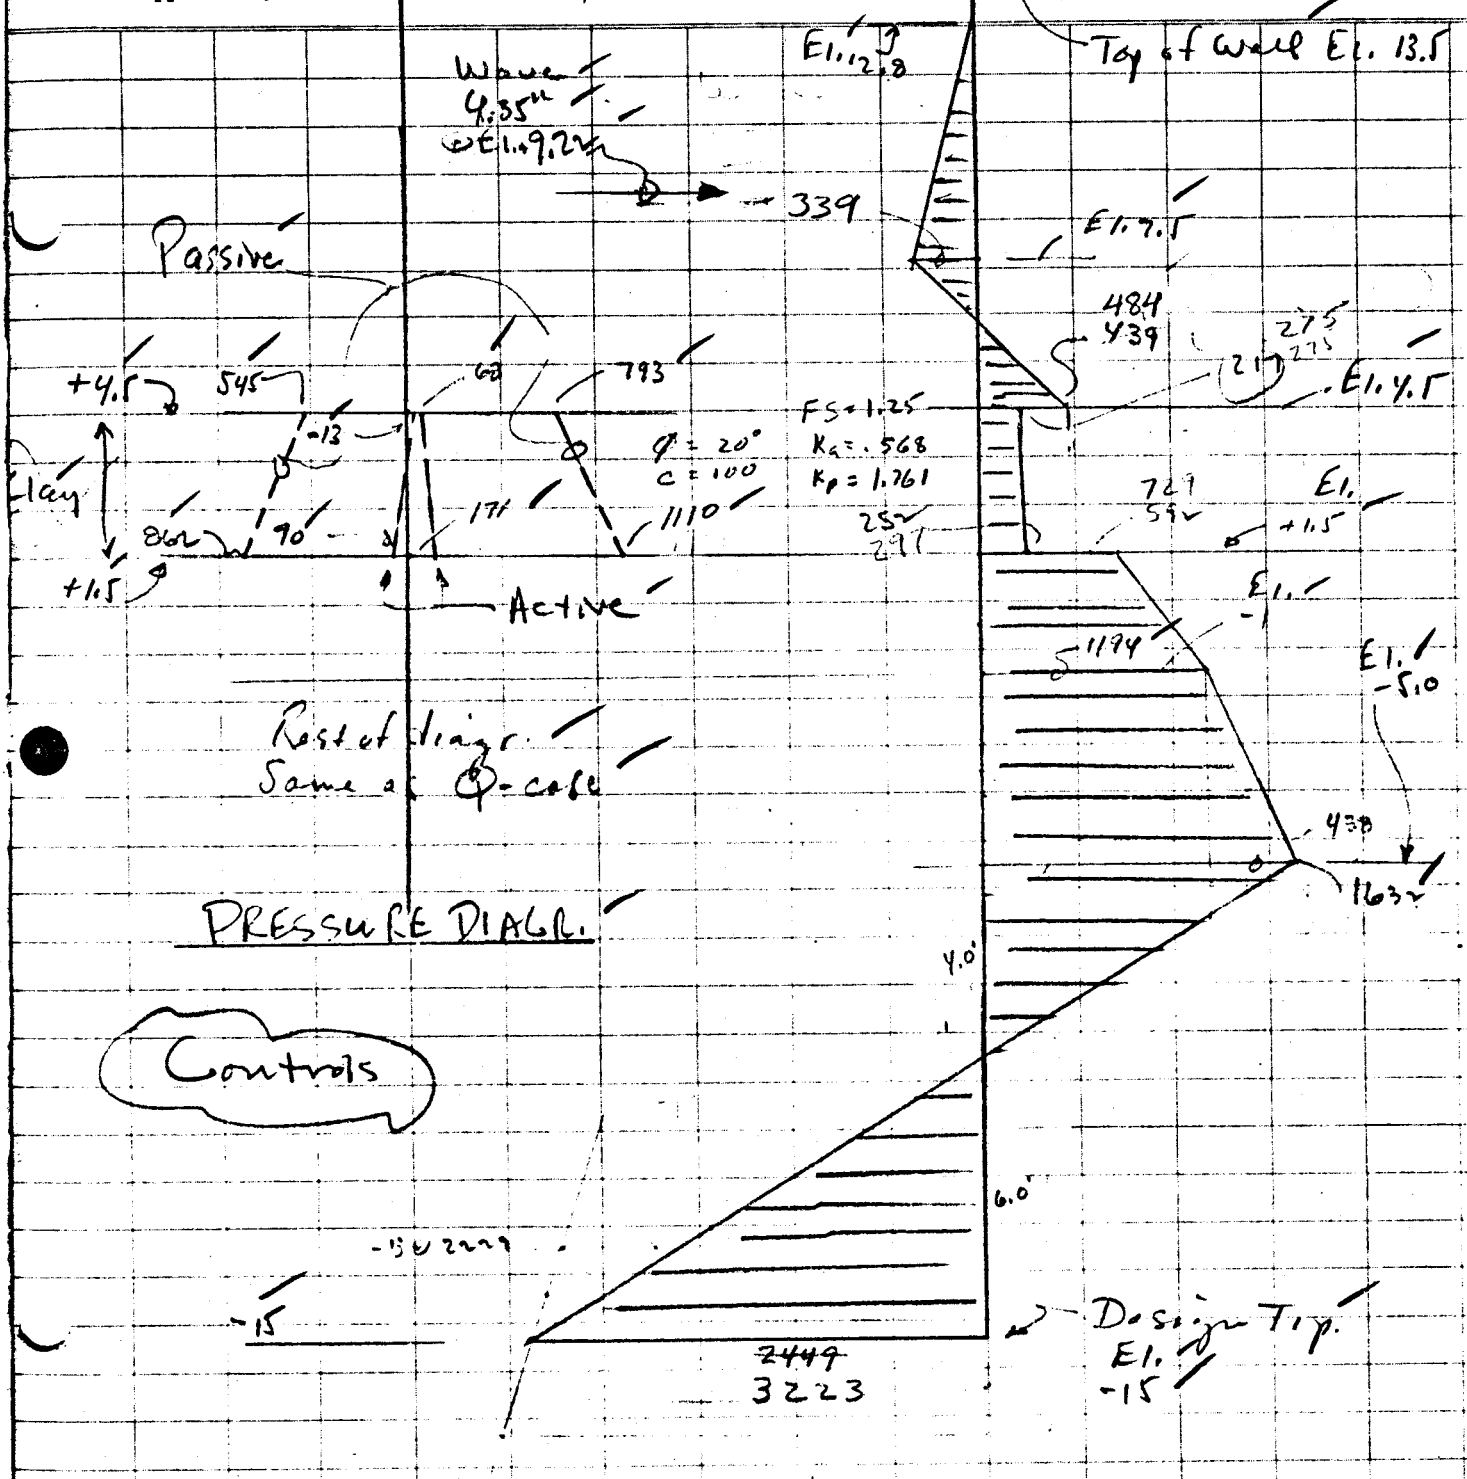 El. 12.8
Top of Wall El. 13.5
Wave
4.35ᵏ
@ El. +9.2
339
El. 7.5
Passive
484
439
275
275
217
El. 4.5
+4.5
545
62
793
-13
φ = 20°
c = 100
FS = 1.25
Ka = .568
Kp = 1.761
Clay
862
90
171
1110
252
297
727
592
El.
+1.5
+1.5
Active
El.
-1
1194
El.
-5.0
Rest of diagr.
Same as Q-case
438
1632
PRESSURE DIAGR.
4.0'
Controls
6.0'
-15
Design Tip.
El.
-15
2449
3223